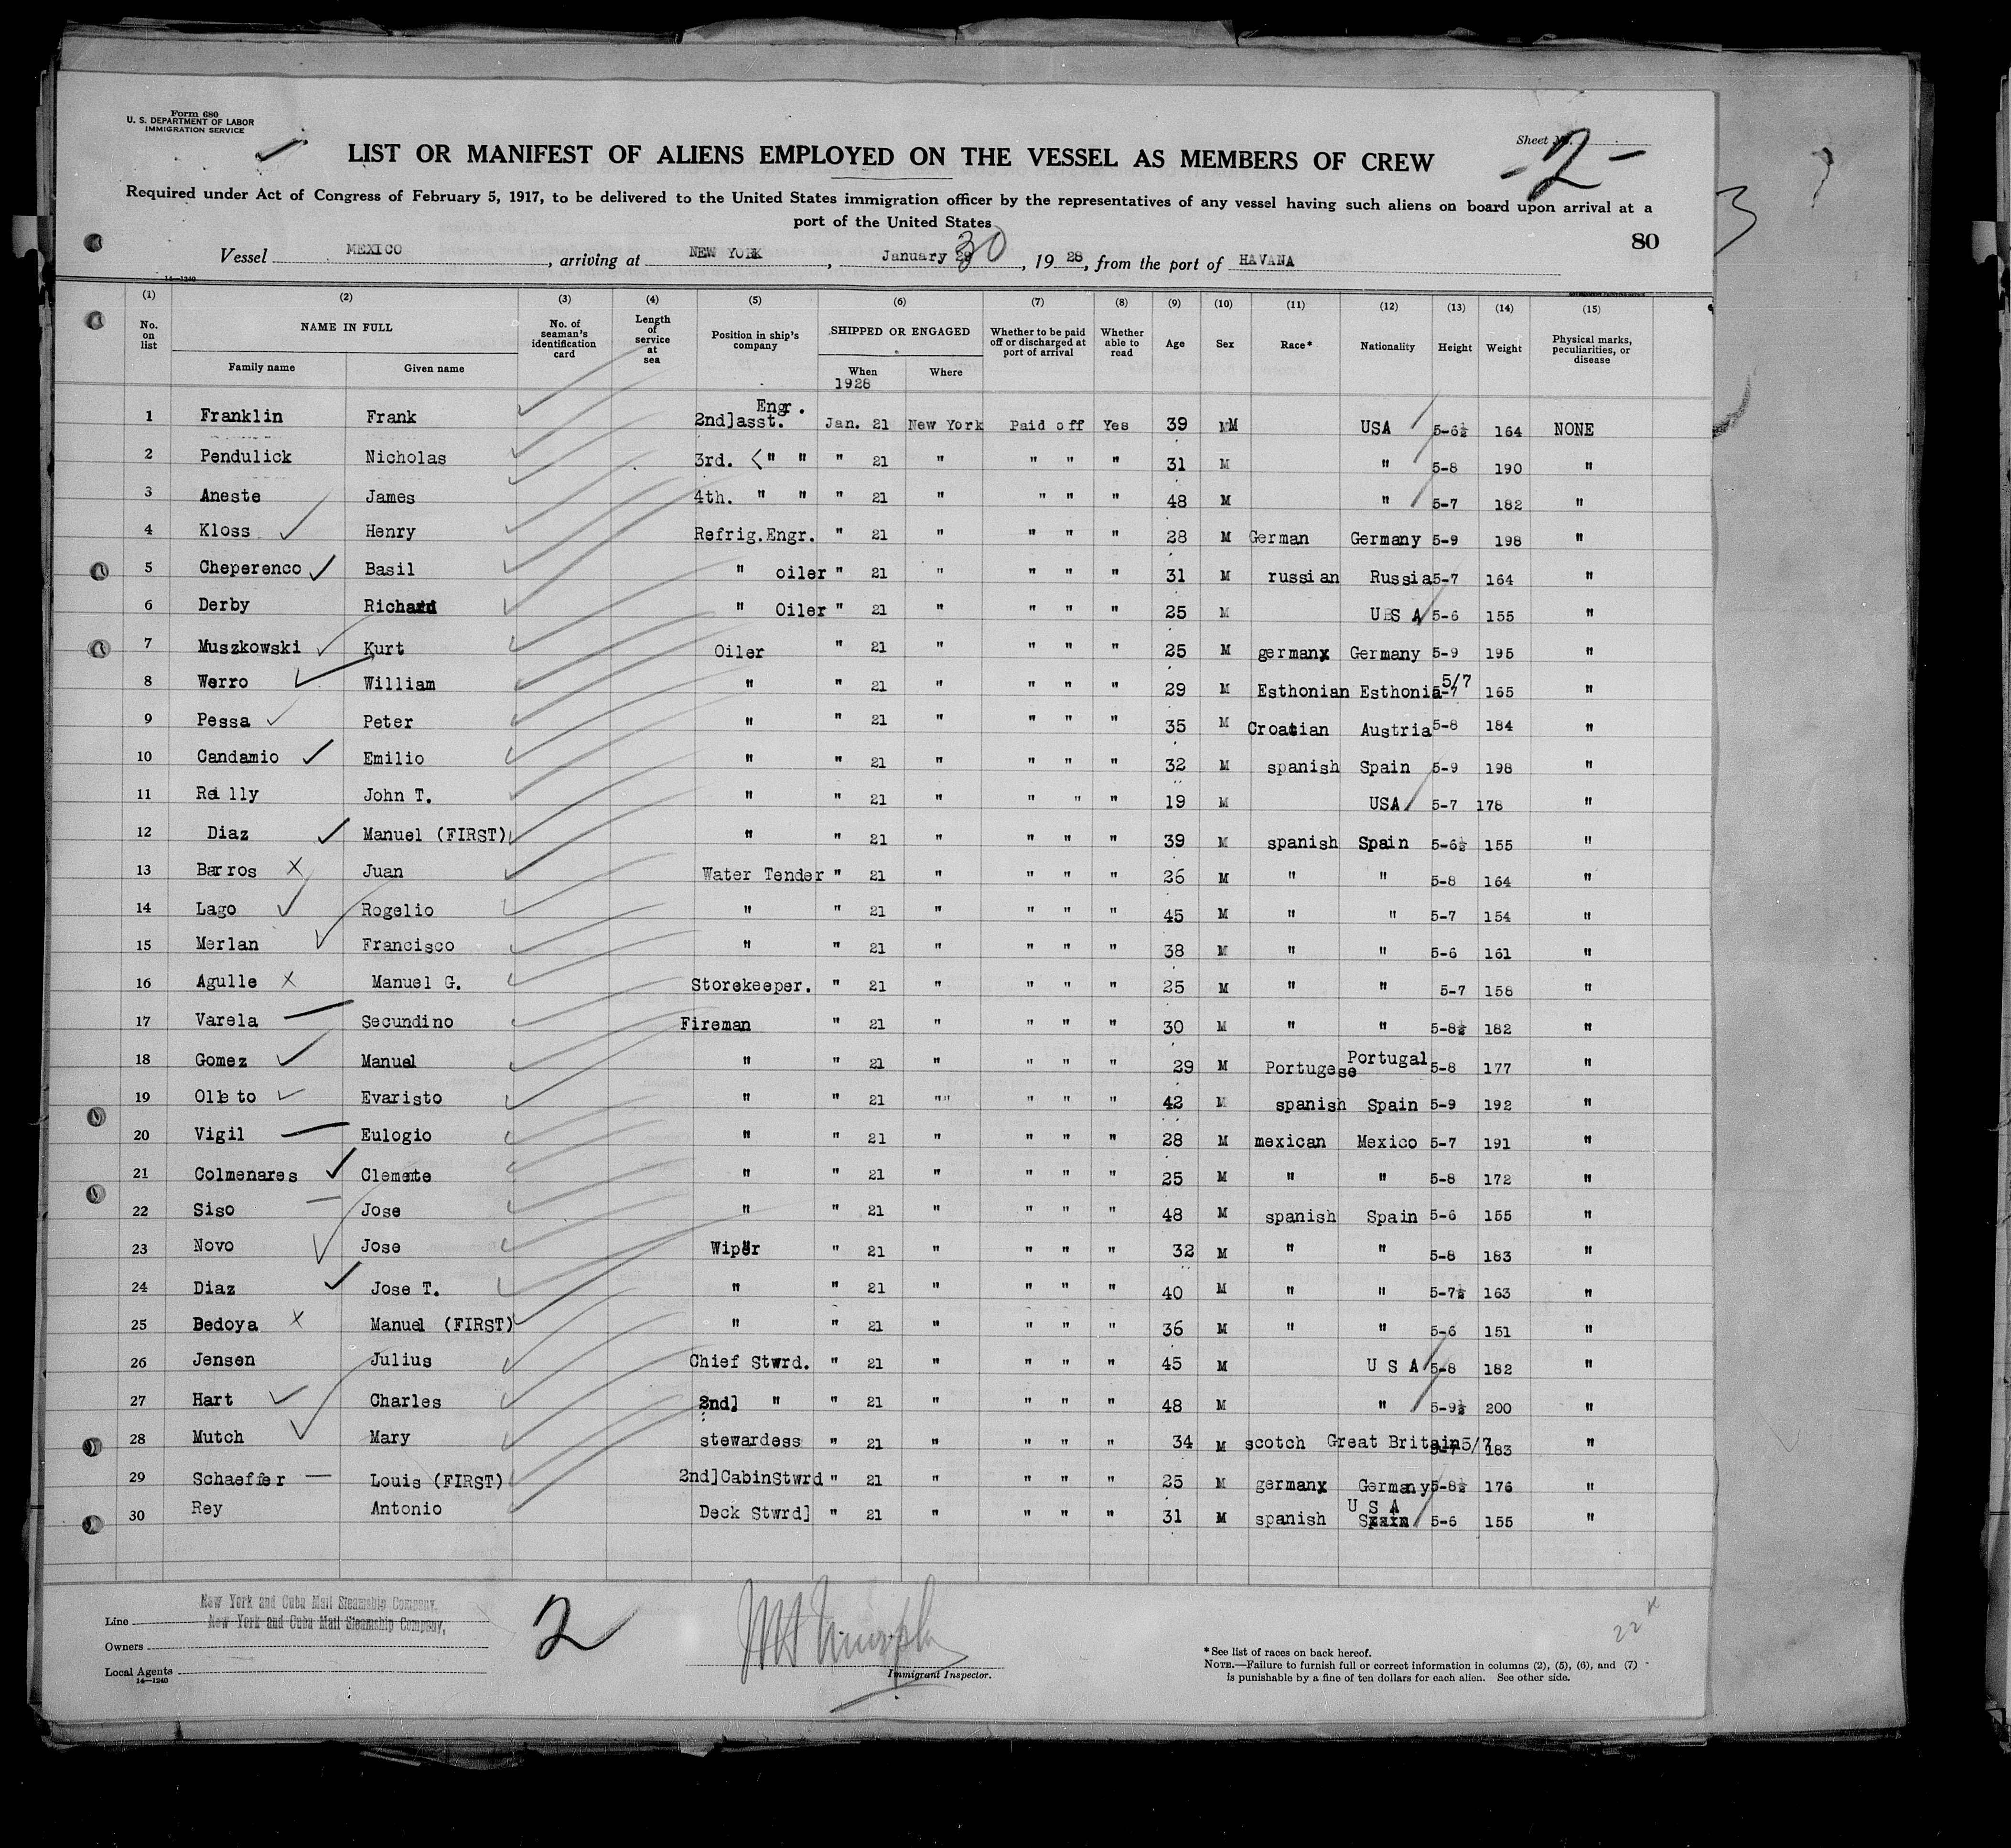 Form 680
U. S. DEPARTMENT OF LABOR
IMMIGRATION SERVICE
Sheet No.
-2-
LIST OR MANIFEST OF ALIENS EMPLOYED ON THE VESSEL AS MEMBERS OF CREW
Required under Act of Congress of February 5, 1917, to be delivered to the United States immigration officer by the representatives of any vessel having such aliens on board upon arrival at a
port of the United States
3
80
Vessel MEXICO, arriving at NEW YORK, January 30, 1928, from the port of HAVANA
14—1240
(1) (2) (3) (4) (5) (6) (7) (8) (9) (10) (11) (12) (13) (14) (15)
No. on list NAME IN FULL Family name Given name No. of seaman's identification card Length of service at sea Position in ship's company SHIPPED OR ENGAGED When Where Whether to be paid off or discharged at port of arrival Whether able to read Age Sex Race* Nationality Height Weight Physical marks, peculiarities, or disease
1928
1 Franklin Frank 2nd]asst. Engr. Jan. 21 New York Paid off Yes 39 M USA 5-6½ 164 NONE
2 Pendulick Nicholas 3rd. " " " 21 " " " " 31 M " 5-8 190 "
3 Aneste James 4th. " " " 21 " " " " 48 M " 5-7 182 "
4 Kloss Henry Refrig.Engr. " 21 " " " " 28 M German Germany 5-9 198 "
5 Cheperenco Basil " oiler " 21 " " " " 31 M russian Russia 5-7 164 "
6 Derby Richard " Oiler " 21 " " " " 25 M U S A 5-6 155 "
7 Muszkowski Kurt Oiler " 21 " " " " 25 M german Germany 5-9 195 "
8 Werro William " " 21 " " " " 29 M Esthonian Esthonia 5/7 165 "
9 Pessa Peter " " 21 " " " " 35 M Croatian Austria 5-8 184 "
10 Candamio Emilio " " 21 " " " " 32 M spanish Spain 5-9 198 "
11 Reilly John T. " " 21 " " " " 19 M USA 5-7 178 "
12 Diaz Manuel (FIRST) " " 21 " " " " 39 M spanish Spain 5-6½ 155 "
13 Barros X Juan Water Tender " 21 " " " " 26 M " " 5-8 164 "
14 Lago Rogelio " " 21 " " " " 45 M " " 5-7 154 "
15 Merlan Francisco " " 21 " " " " 38 M " " 5-6 161 "
16 Agulle X Manuel G. Storekeeper. " 21 " " " " 25 M " " 5-7 158 "
17 Varela Secundino Fireman " 21 " " " " 30 M " " 5-8½ 182 "
18 Gomez Manuel " " 21 " " " " 29 M Portugese Portugal 5-8 177 "
19 Olleto Evaristo " " 21 "" " " " 42 M spanish Spain 5-9 192 "
20 Vigil Eulogio " " 21 " " " " 28 M mexican Mexico 5-7 191 "
21 Colmenares Clemente " " 21 " " " " 25 M " " 5-8 172 "
22 Siso Jose " " 21 " " " " 48 M spanish Spain 5-6 155 "
23 Novo Jose Wiper " 21 " " " " 32 M " " 5-8 183 "
24 Diaz Jose T. " " 21 " " " " 40 M " " 5-7½ 163 "
25 Bedoya X Manuel (FIRST) " " 21 " " " " 36 M " " 5-6 151 "
26 Jensen Julius Chief Stwrd. " 21 " " " " 45 M U S A 5-8 182 "
27 Hart Charles 2nd] " " 21 " " " " 48 M " 5-9½ 200 "
28 Mutch Mary stewardess " 21 " " " " 34 M scotch Great Britain 5/7 183 "
29 Schaeffer Louis (FIRST) 2nd]CabinStwrd " 21 " " " " 25 M german Germany 5-8½ 176 "
30 Rey Antonio Deck Stwrd] " 21 " " " " 31 M spanish U S A Spain 5-6 155 "
Line New York and Cuba Mail Steamship Company,
New York and Cuba Mail Steamship Company,
Owners
Local Agents
14—1240
2
Immigrant Inspector.
*See list of races on back hereof.
NOTE.—Failure to furnish full or correct information in columns (2), (5), (6), and (7)
is punishable by a fine of ten dollars for each alien. See other side.